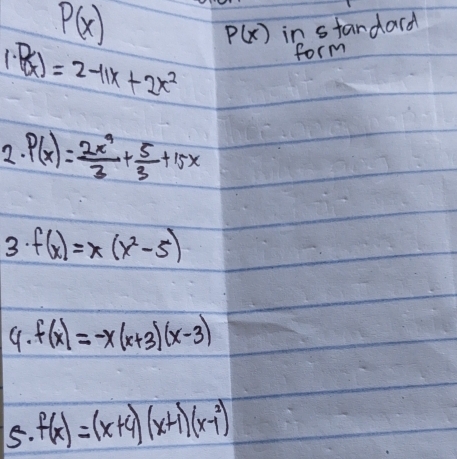 P(x)
P(x) in standard
form
1. P(x) = 2-11x + 2x²
2. P(x) = 2x⁹/3 + 5/3 + 15x
3. f(x) = x (x² - 5)
4. f(x) = -x(x+3)(x-3)
5. f(x) = (x+4)(x+1)(x-1²)